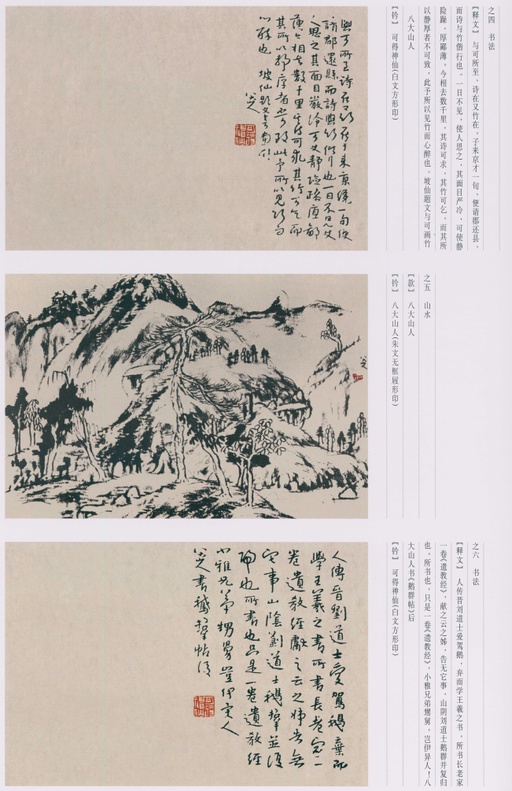 之四 书法
【释文】 与可所至，诗在又竹在，子来京才一旬，便请郡还县，
而诗与竹偕行也。一日不见，使人思之，其面目严冷，可使静
险躁，厚鄙薄。今相去数千里，其诗可求，其竹可乞，而其所
以静厚者不可致，此予所以见竹而心醉也。坡仙题文与可画竹
八大山人
【钤】 可得神仙(白文方形印)
與可所至诗在又竹在子来京才一旬便
請郡還縣而诗與竹偕行也一日不見使
人思之其面目嚴冷可使静險躁厚鄙
薄今相去數千里其诗可求其竹可乞而
其所以静厚者不可致此予所以見竹而
心醉也 坡仙題文與可画竹
八大山人
之五 山水
【款】 八大山人
【钤】 八大山人(朱文无框屐形印)
八大山人
之六 书法
【释文】 人传晋刘道士爱驾鹅，弃而学王羲之书，所书长老家
一卷《遗教经》，献之云之姊，告无它事，山阴刘道士鹅群并复归
也，所书也，只是一卷《遗教经》，小雅兄弟甥舅，岂伊异人！八
大山人书《鹅群帖》后
【钤】 可得神仙(白文方形印)
人傳晉劉道士愛駕鵝棄而
學王羲之書所書長老家一
卷遺教經獻之云之姊告無
它事山陰劉道士鵝群並復
歸也所書也只是一卷遺教經
小雅兄弟甥舅豈伊異人
八大山人書鵝群帖後